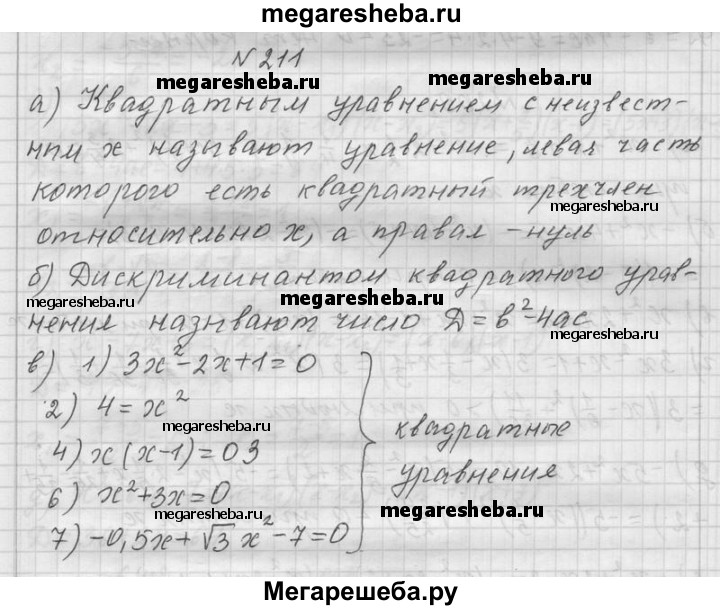 megaresheba.ru
N 211
megaresheba.ru megaresheba.ru
а) Квадратным уравнением с неизвест-
ным x называют уравнение, левая часть
которого есть квадратный трехчлен
megaresheba.ru
относительно x, а правая - нуль
б) Дискриминантом квадратного урав-
megaresheba.ru megaresheba.ru megaresheba.ru
нения называют число Д = в²-4ас
в) 1) 3x²-2x+1=0
2) 4 = x²
megaresheba.ru
4) x(x-1)=03
квадратные
уравнения
megaresheba.ru
6) x²+3x=0
megaresheba.ru megaresheba.ru
7) -0,5x+√3 x²-7=0
Мегарешеба.ру